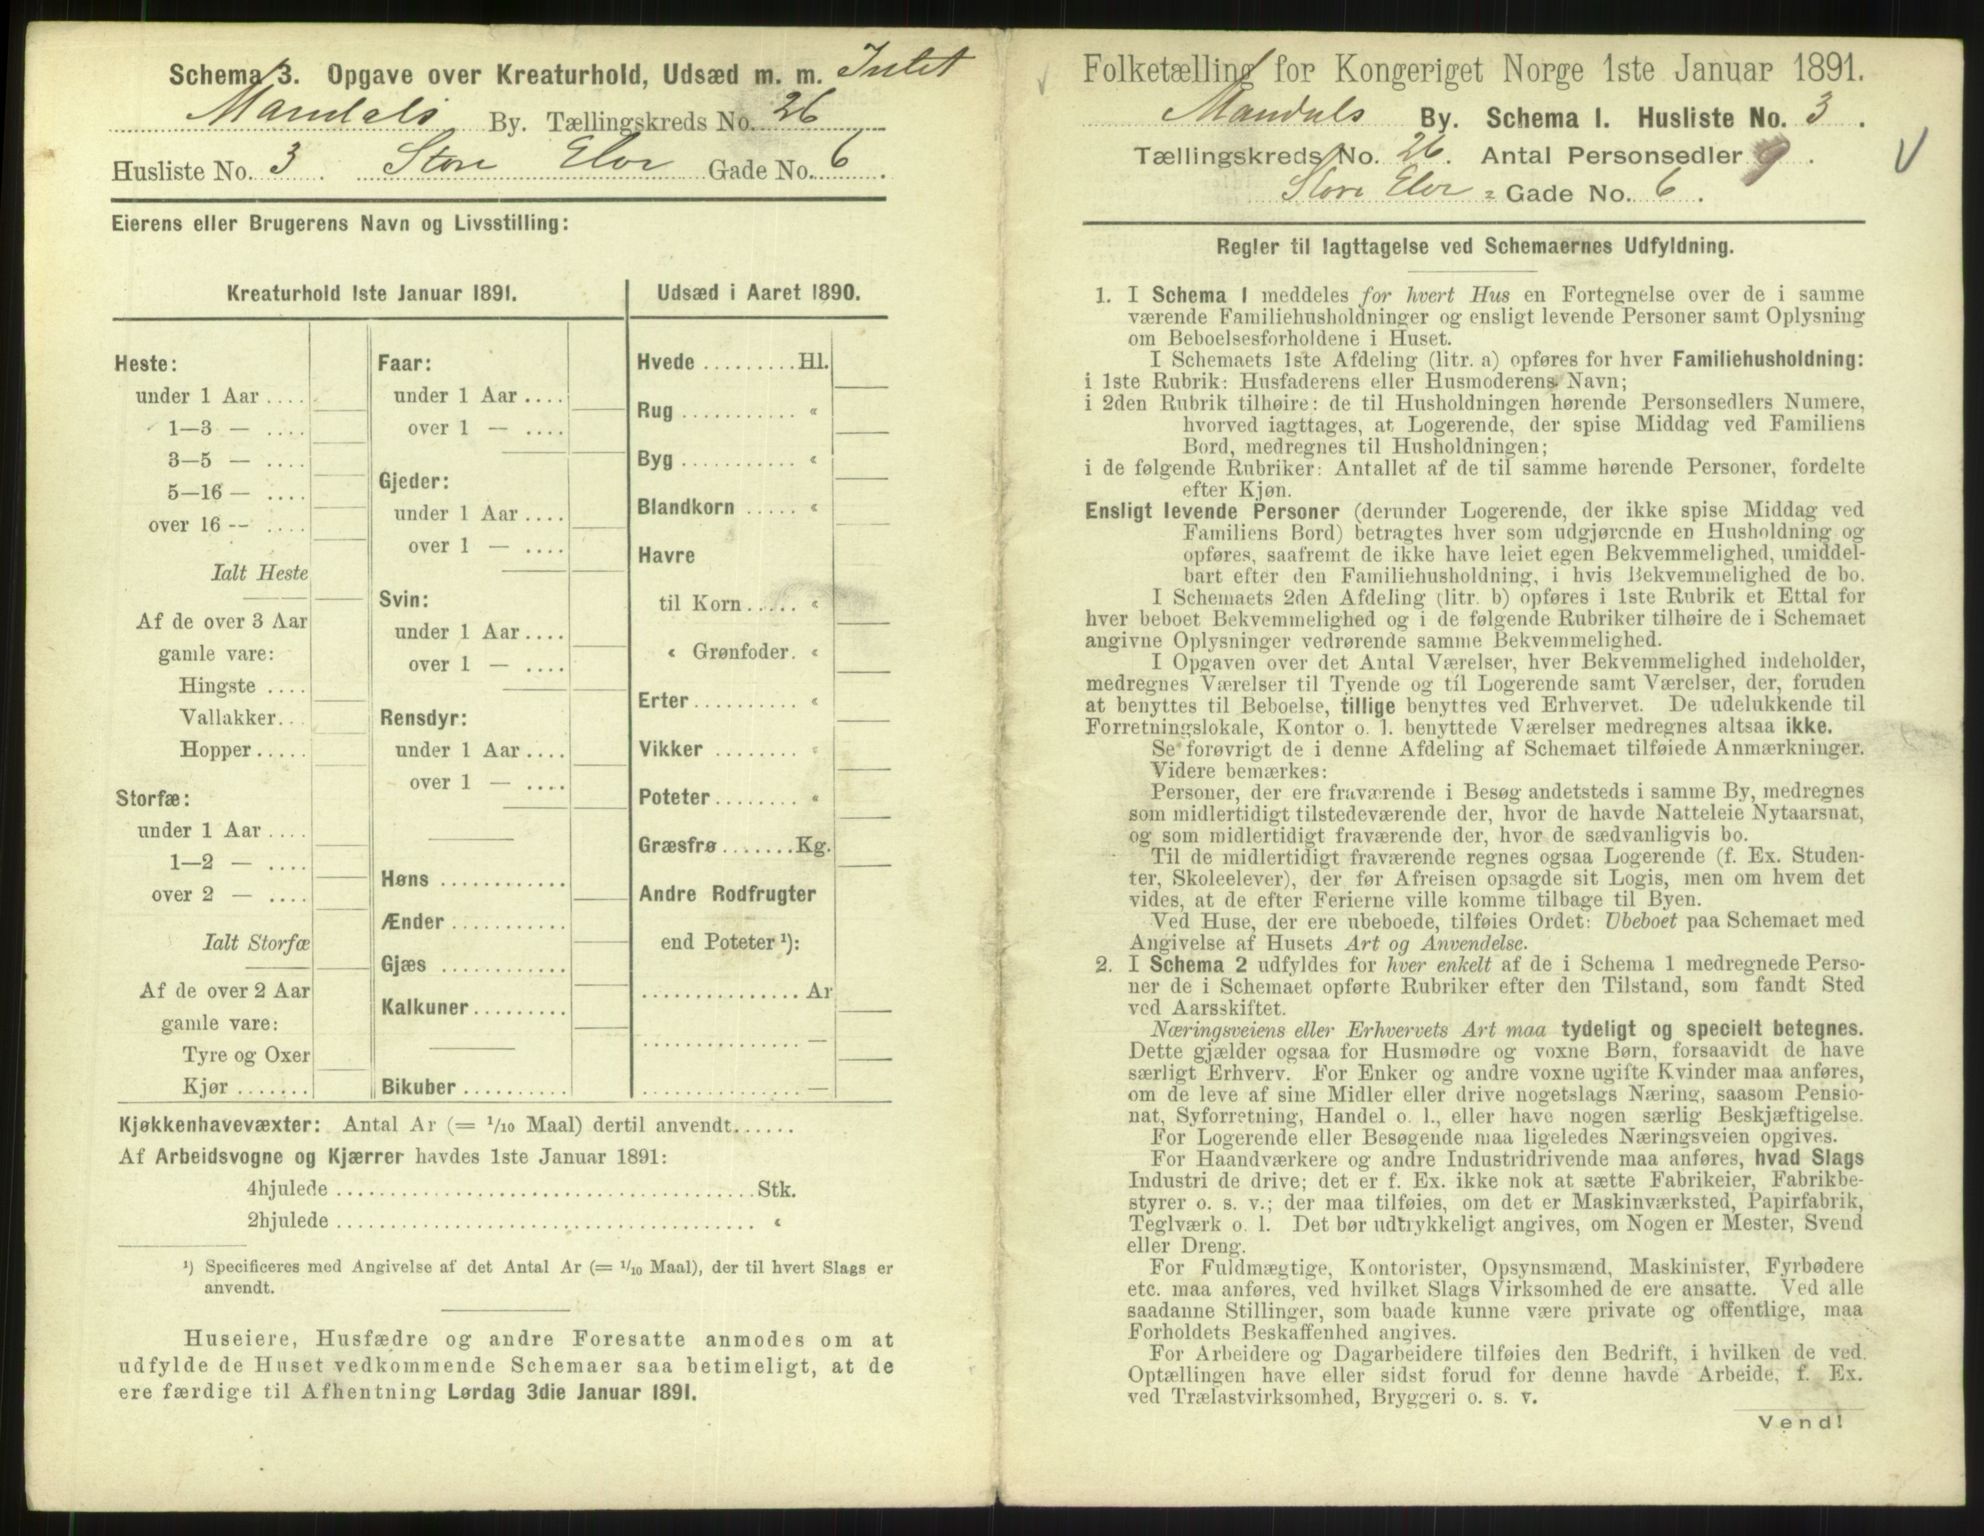 Schema 3. Opgave over Kreaturhold, Udsæd m. m. Intet
Mandals By. Tællingskreds No. 26
Husliste No. 3. Store Elve Gade No. 6.
Eierens eller Brugerens Navn og Livsstilling:
Kreaturhold 1ste Januar 1891.
Heste:
under 1 Aar ....
1—3 — ....
3—5 — ....
5—16 — ....
over 16 -- ....
Ialt Heste
Af de over 3 Aar
gamle vare:
Hingste ....
Vallakker...
Hopper .....
Storfæ:
under 1 Aar ....
1—2 — ....
over 2 — ....
Ialt Storfæ
Af de over 2 Aar
gamle vare:
Tyre og Oxer
Kjør .......
Faar:
under 1 Aar ....
over 1 — ....
Gjeder:
under 1 Aar ....
over 1 — ....
Svin:
under 1 Aar ....
over 1 — ....
Rensdyr:
under 1 Aar ....
over 1 — ....
Høns ............
Ænder ...........
Gjæs ............
Kalkuner.........
Bikuber ..........
Udsæd i Aaret 1890.
Hvede .........Hl.
Rug ........... «
Byg ........... «
Blandkorn ..... «
Havre
til Korn ..... «
« Grønfoder. «
Erter.......... «
Vikker ........ «
Poteter........ «
Græsfrø .......Kg.
Andre Rodfrugter
end Poteter ¹):
............... Ar
............... —
............... —
Kjøkkenhavevæxter: Antal Ar (= 1/10 Maal) dertil anvendt......
Af Arbeidsvogne og Kjærrer havdes 1ste Januar 1891:
4hjulede ........................................Stk.
2hjulede ........................................ «
¹) Specificeres med Angivelse af det Antal Ar (= 1/10 Maal), der til hvert Slags er
anvendt.
Huseiere, Husfædre og andre Foresatte anmodes om at
udfylde de Huset vedkommende Schemaer saa betimeligt, at de
ere færdige til Afhentning Lørdag 3die Januar 1891.
Folketælling for Kongeriget Norge 1ste Januar 1891.
Mandals By. Schema I. Husliste No. 3.
Tællingskreds No. 26. Antal Personsedler 9.
Store Elve - Gade No. 6.
Regler til Iagttagelse ved Schemaernes Udfyldning.
1. I Schema I meddeles for hvert Hus en Fortegnelse over de i samme
værende Familiehusholdninger og ensligt levende Personer samt Oplysning
om Beboelsesforholdene i Huset.
I Schemaets 1ste Afdeling (litr. a) opføres for hver Familiehusholdning:
i 1ste Rubrik: Husfaderens eller Husmoderens Navn;
i 2den Rubrik tilhøire: de til Husholdningen hørende Personsedlers Numere,
hvorved iagttages, at Logerende, der spise Middag ved Familiens
Bord, medregnes til Husholdningen;
i de følgende Rubriker: Antallet af de til samme hørende Personer, fordelte
efter Kjøn.
Ensligt levende Personer (derunder Logerende, der ikke spise Middag ved
Familiens Bord) betragtes hver som udgjørende en Husholdning og
opføres, saafremt de ikke have leiet egen Bekvemmelighed, umiddel-
bart efter den Familiehusholdning, i hvis Bekvemmelighed de bo.
I Schemaets 2den Afdeling (litr. b) opføres i 1ste Rubrik et Ettal for
hver beboet Bekvemmelighed og i de følgende Rubriker tilhøire de i Schemaet
angivne Oplysninger vedrørende samme Bekvemmelighed.
I Opgaven over det Antal Værelser, hver Bekvemmelighed indeholder,
medregnes Værelser til Tyende og til Logerende samt Værelser, der, foruden
at benyttes til Beboelse, tillige benyttes ved Erhvervet. De udelukkende til
Forretningslokale, Kontor o. l. benyttede Værelser medregnes altsaa ikke.
Se forøvrigt de i denne Afdeling af Schemaet tilføiede Anmærkninger.
Videre bemærkes:
Personer, der ere fraværende i Besøg andetsteds i samme By, medregnes
som midlertidigt tilstedeværende der, hvor de havde Natteleie Nytaarsnat,
og som midlertidigt fraværende der, hvor de sædvanligvis bo.
Til de midlertidigt fraværende regnes ogsaa Logerende (f. Ex. Studen-
ter, Skoleelever), der før Afreisen opsagde sit Logis, men om hvem det
vides, at de efter Ferierne ville komme tilbage til Byen.
Ved Huse, der ere ubeboede, tilføies Ordet: Ubeboet paa Schemaet med
Angivelse af Husets Art og Anvendelse.
2. I Schema 2 udfyldes for hver enkelt af de i Schema 1 medregnede Perso-
ner de i Schemaet opførte Rubriker efter den Tilstand, som fandt Sted
ved Aarsskiftet.
Næringsveiens eller Erhvervets Art maa tydeligt og specielt betegnes.
Dette gjælder ogsaa for Husmødre og voxne Børn, forsaavidt de have
særligt Erhverv. For Enker og andre voxne ugifte Kvinder maa anføres,
om de leve af sine Midler eller drive nogetslags Næring, saasom Pensio-
nat, Syforretning, Handel o. l., eller have nogen særlig Beskjæftigelse.
For Logerende eller Besøgende maa ligeledes Næringsveien opgives.
For Haandværkere og andre Industridrivende maa anføres, hvad Slags
Industri de drive; det er f. Ex. ikke nok at sætte Fabrikeier, Fabrikbe-
styrer o. s. v.; der maa tilføies, om det er Maskinværksted, Papirfabrik,
Teglværk o. l. Det bør udtrykkeligt angives, om Nogen er Mester, Svend
eller Dreng.
For Fuldmægtige, Kontorister, Opsynsmænd, Maskinister, Fyrbødere
etc. maa anføres, ved hvilket Slags Virksomhed de ere ansatte. Ved alle
saadanne Stillinger, som baade kunne være private og offentlige, maa
Forholdets Beskaffenhed angives.
For Arbeidere og Dagarbeidere tilføies den Bedrift, i hvilken de ved
Optællingen have eller sidst forud for denne havde Arbeide, f. Ex.
ved Trælastvirksomhed, Bryggeri o. s. v.
Vend!